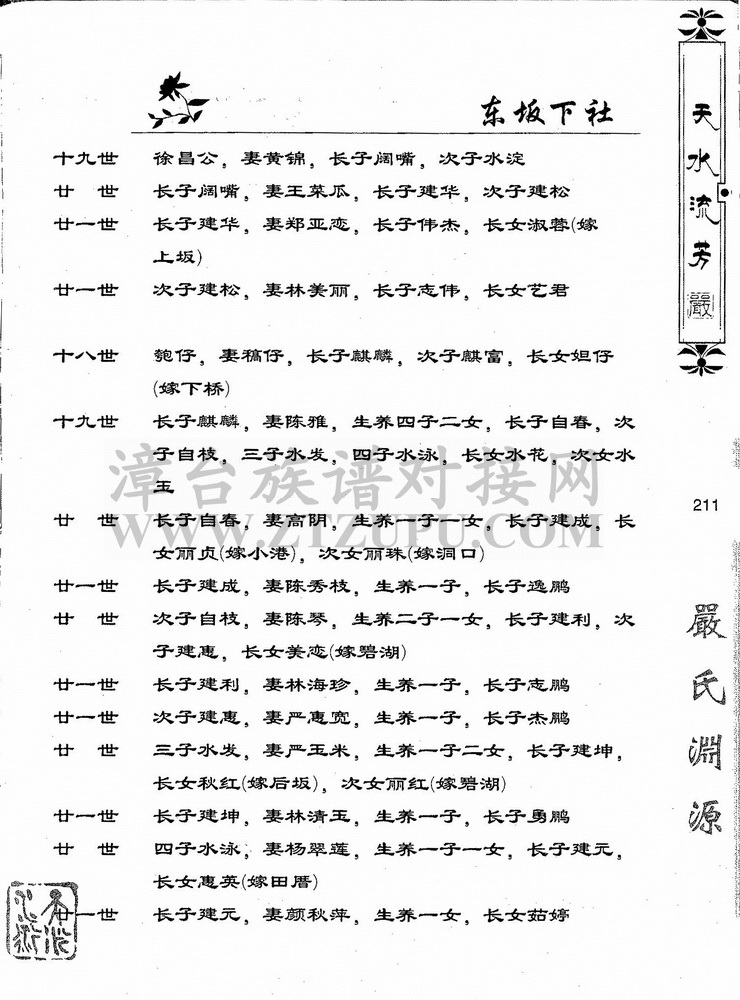 东坂下社
十九世 徐昌公，妻黄锦，长子阔嘴，次子水淀
廿 世 长子阔嘴，妻王菜瓜，长子建华，次子建松
廿一世 长子建华，妻郑亚恋，长子伟杰，长女淑蓉(嫁
上坂)
廿一世 次子建松，妻林美丽，长子志伟，长女艺君
十八世 匏仔，妻稿仔，长子麒麟，次子麒富，长女妲仔
(嫁下桥)
十九世 长子麒麟，妻陈雅，生养四子二女，长子自春，次
子自枝，三子水发，四子水泳，长女水花，次女水
玉
廿 世 长子自春，妻高阴，生养一子一女，长子建成，长
女丽贞(嫁小港)，次女丽珠(嫁洞口)
廿一世 长子建成，妻陈秀枝，生养一子，长子逸鹏
廿 世 次子自枝，妻陈琴，生养二子一女，长子建利，次
子建惠，长女美恋(嫁碧湖)
廿一世 长子建利，妻林海珍，生养一子，长子志鹏
廿一世 次子建惠，妻严惠宽，生养一子，长子杰鹏
廿 世 三子水发，妻严玉米，生养一子二女，长子建坤，
长女秋红(嫁后坂)，次女丽红(嫁碧湖)
廿一世 长子建坤，妻林清玉，生养一子，长子勇鹏
廿 世 四子水泳，妻杨翠莲，生养一子一女，长子建元，
长女惠英(嫁田厝)
廿一世 长子建元，妻颜秋萍，生养一女，长女茹婷
天水流芳
嚴
211
嚴氏淵源
漳台族谱对接网
WWW.ZTZUPU.COM